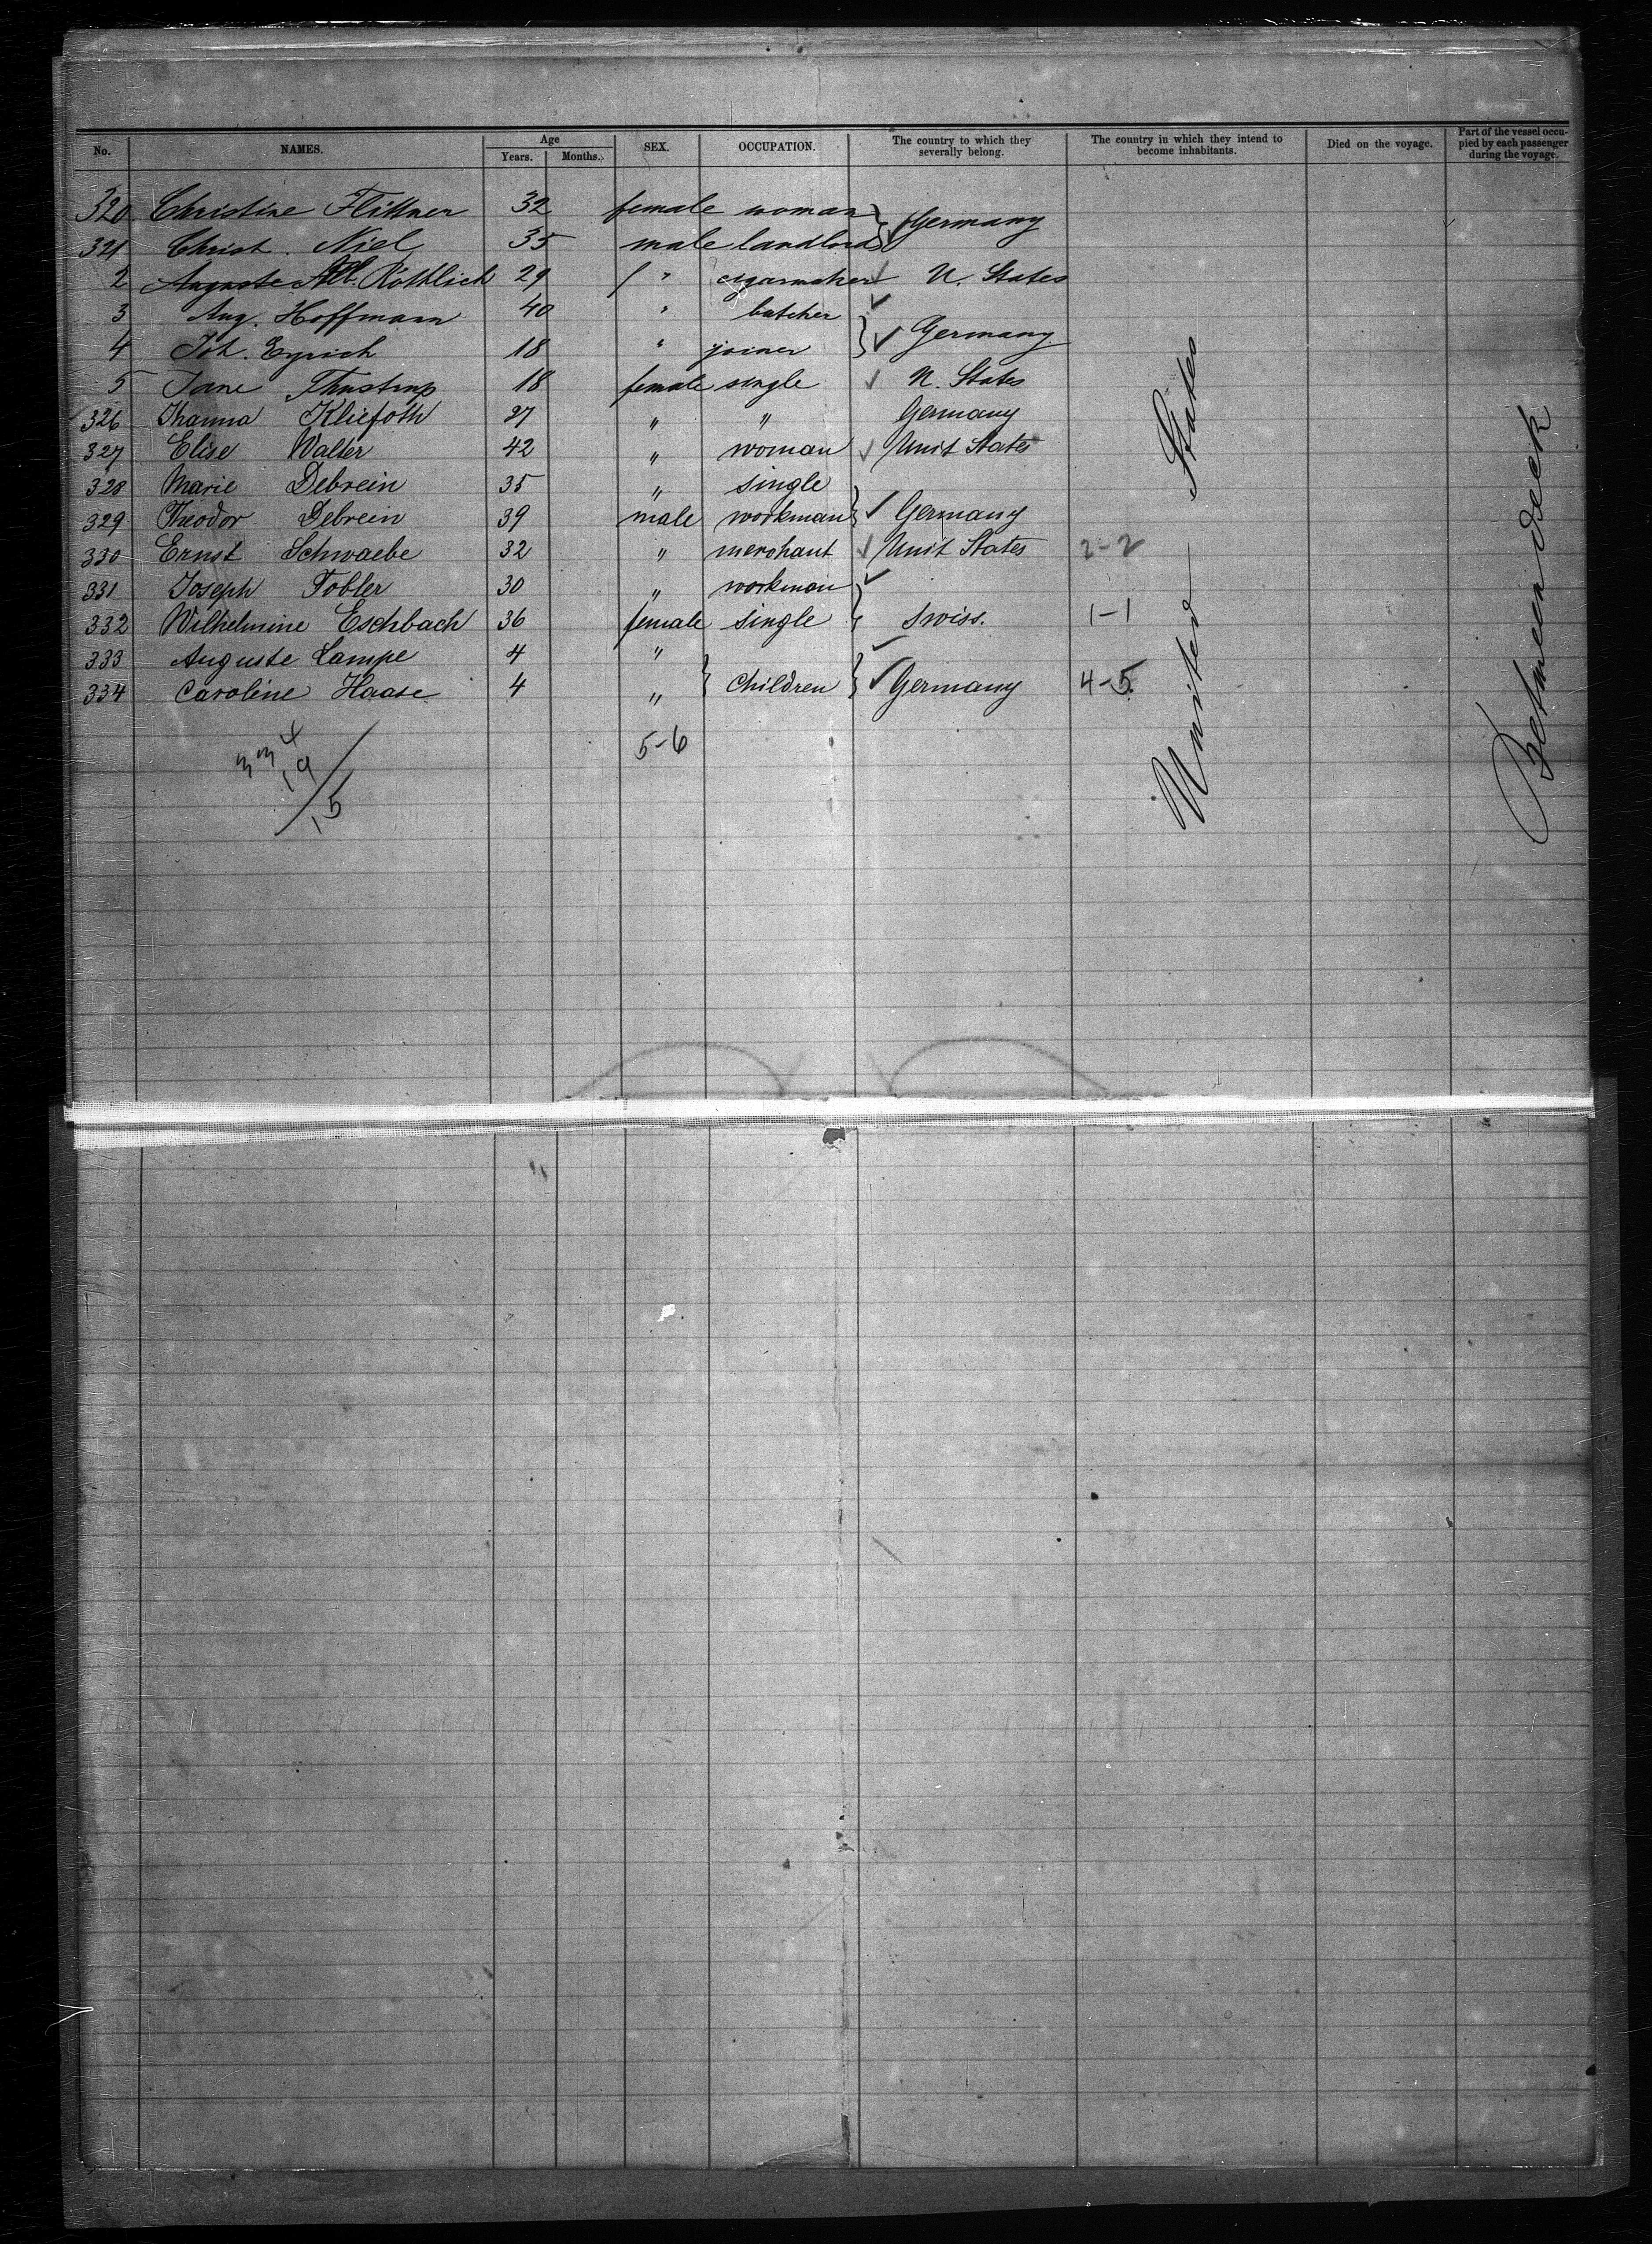 No. NAMES. Age Years. Months. SEX. OCCUPATION. The country to which they severally belong. The country in which they intend to become inhabitants. Died on the voyage. Part of the vessel occupied by each passenger during the voyage.
320 Christine Flittner 32 female woman } Germany
321 Christ. Niel 35 male landlord
2 Auguste Ad. Röthlich 29 " cigarmaker U. States
3 Aug. Hoffmann 40 " butcher
4 Joh. Eyrich 18 " joiner } Germany
5 Jane Thustrup 18 female single U. States
326 Khanna Kliefoth 27 " " Germany
327 Elise Walter 42 " woman Unit States
328 Marie Debrein 35 " single
329 Theodor Debrein 39 male workman } Germany
330 Ernst Schwaebe 32 " merchant Unit States 2-2
331 Joseph Tobler 30 " workman
332 Wilhelmine Eschbach 36 female single } swiss. 1-1
333 Auguste Lampe 4 "
334 Caroline Haase 4 " } Children } Germany 4-5
United States
Between deck
334
19
15
5-6